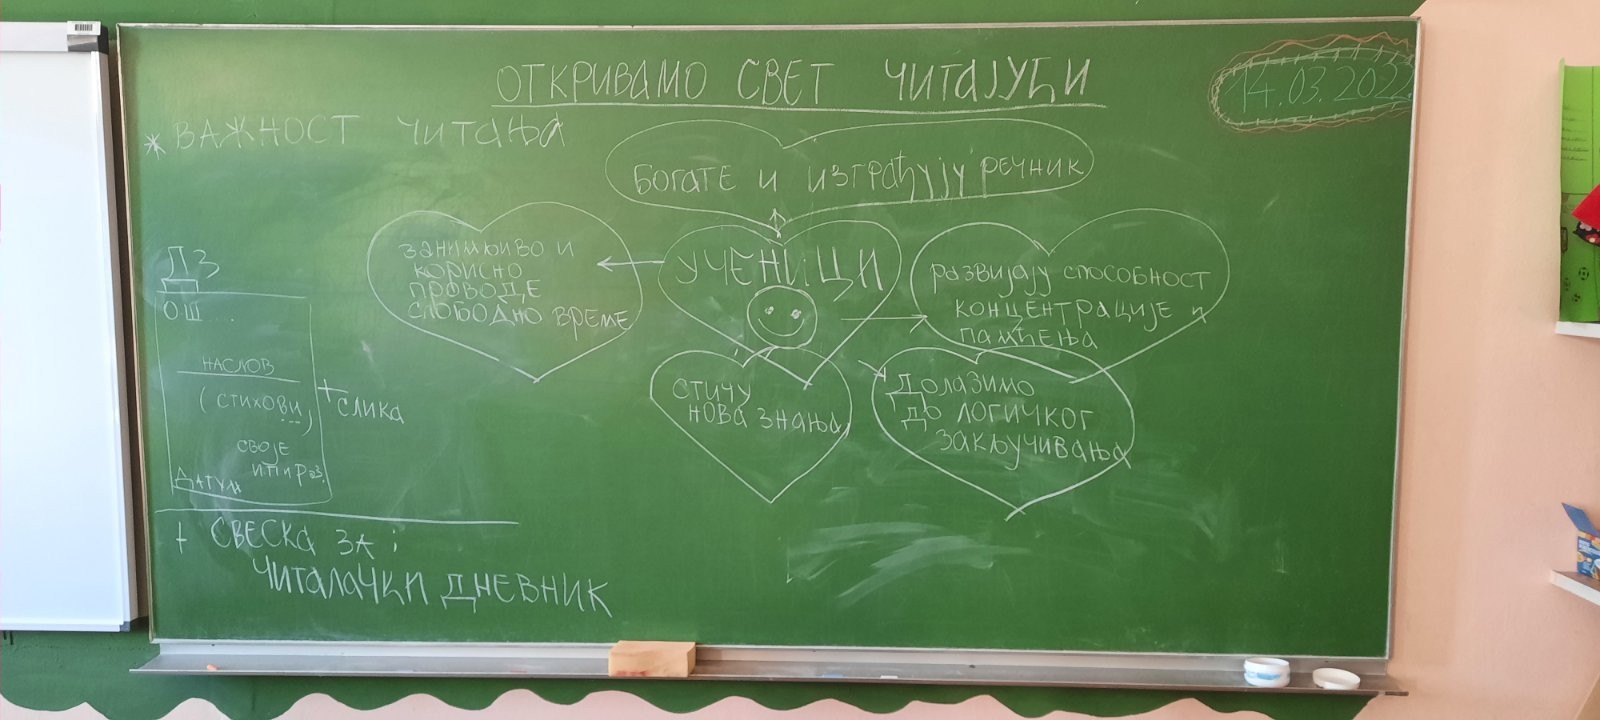 ОТКРИВАМО СВЕТ ЧИТАЈУЋИ
14.03.2022.
* ВАЖНОСТ ЧИТАЊА
БОГАТЕ И ИЗГРАЂУЈУ РЕЧНИК
ЗАНИМЉИВО И
КОРИСНО
ПРОВОДЕ
СЛОБОДНО ВРЕМЕ
УЧЕНИЦИ
РАЗВИЈАЈУ СПОСОБНОСТ
КОНЦЕНТРАЦИЈЕ И
ПАМЋЕЊА
СТИЧУ
НОВА ЗНАЊА
ДОЛАЗИМО
ДО ЛОГИЧКОГ
ЗАКЉУЧИВАЊА
ДЗ
ОШ
НАСЛОВ
(СТИХОВИ,
СВОЈЕ
ДАТУМ
+ СЛИКА
+ СВЕСКА ЗА
ЧИТАЛАЧКИ ДНЕВНИК